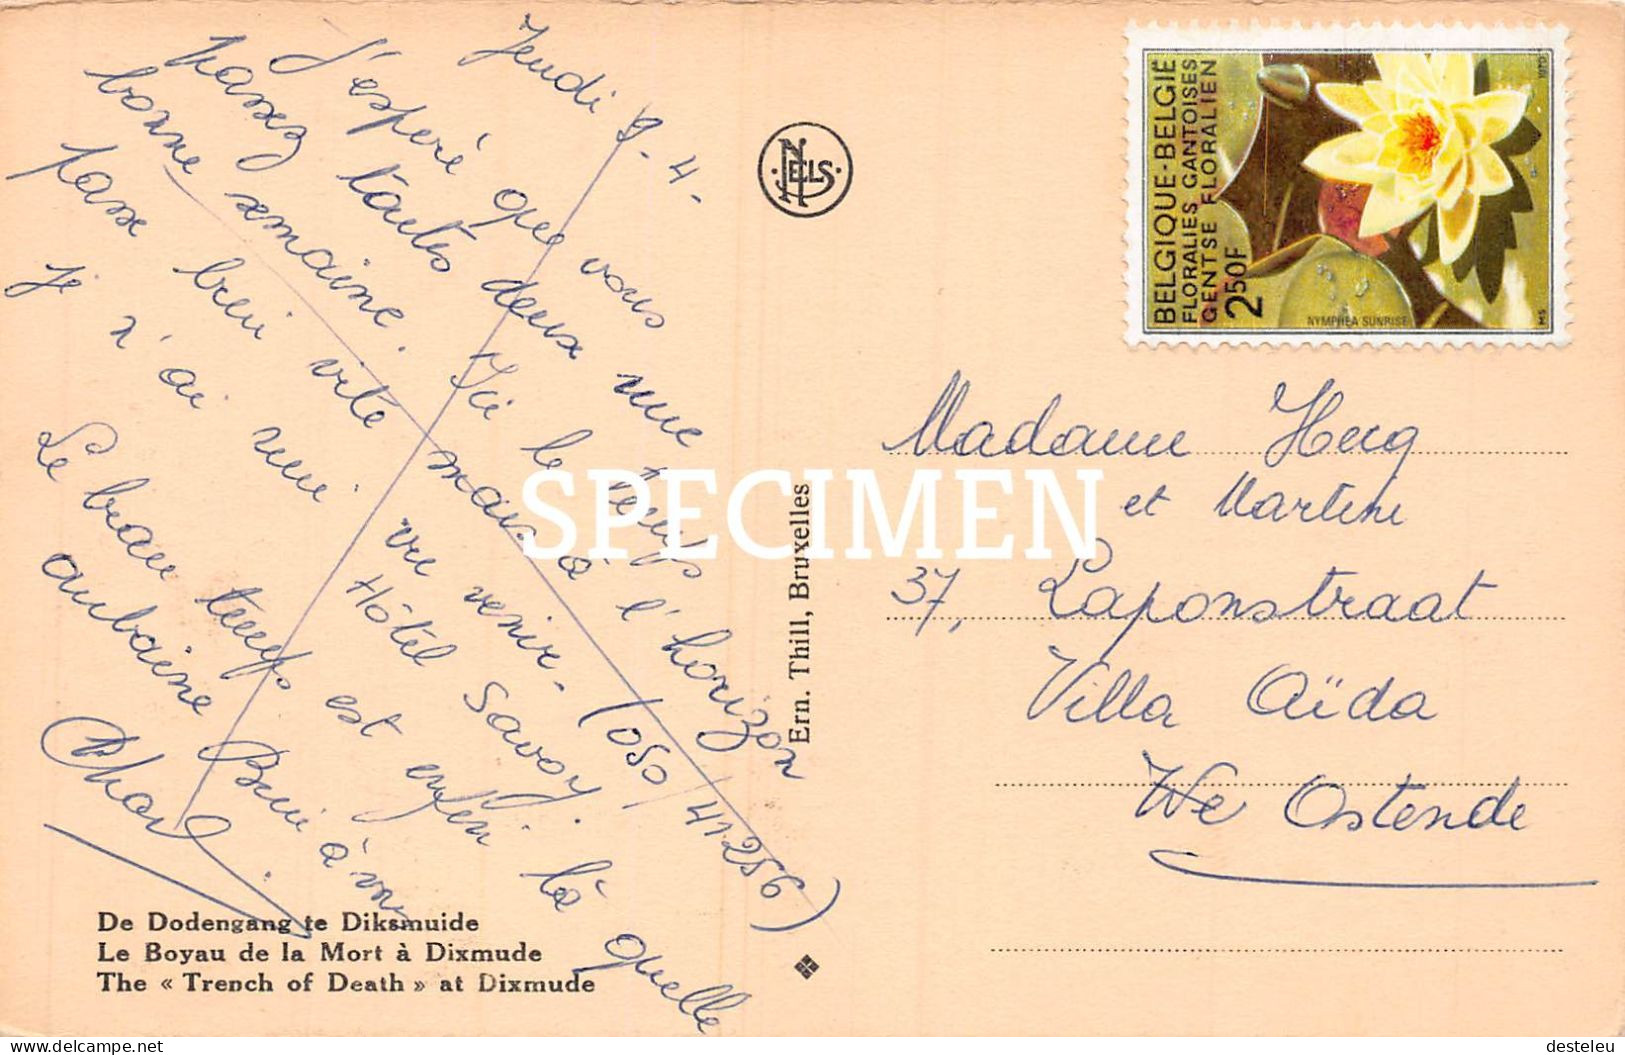 Jeudi 9-4-
J'espère que vous
passez toutes deux une
bonne semaine. Ici le temps
passe bien vite mais à l'horizon
je n'ai rien vu venir - (050/41256)
Hôtel Savoy.
Le beau temps est enfin là quelle
aubaine Bien à vous
NELS
Ern. Thill, Bruxelles
BELGIQUE-BELGIË
FLORALIES GANTOISES
GENTSE FLORALIEN
2 50F
NYMPHEA SUNRISE
1970
MS
Madame Herg
et Martine
37, Laponstraat
Villa Aïda
We Ostende
SPECIMEN
De Dodengang te Diksmuide
Le Boyau de la Mort à Dixmude
The « Trench of Death » at Dixmude
delcampe.net
desteleu